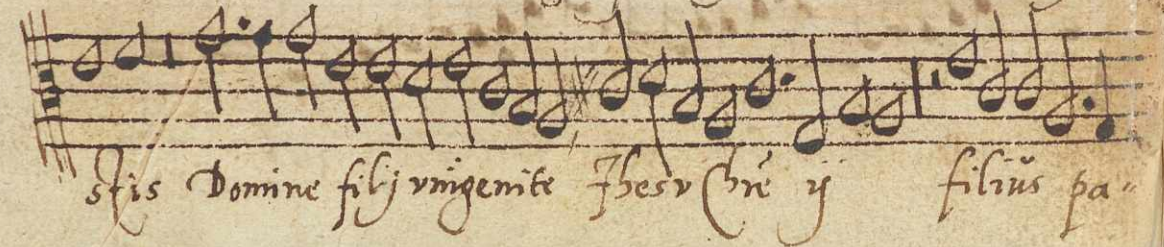 stis Domine filij vnigenite Jhesv Chrē ij filius pa-